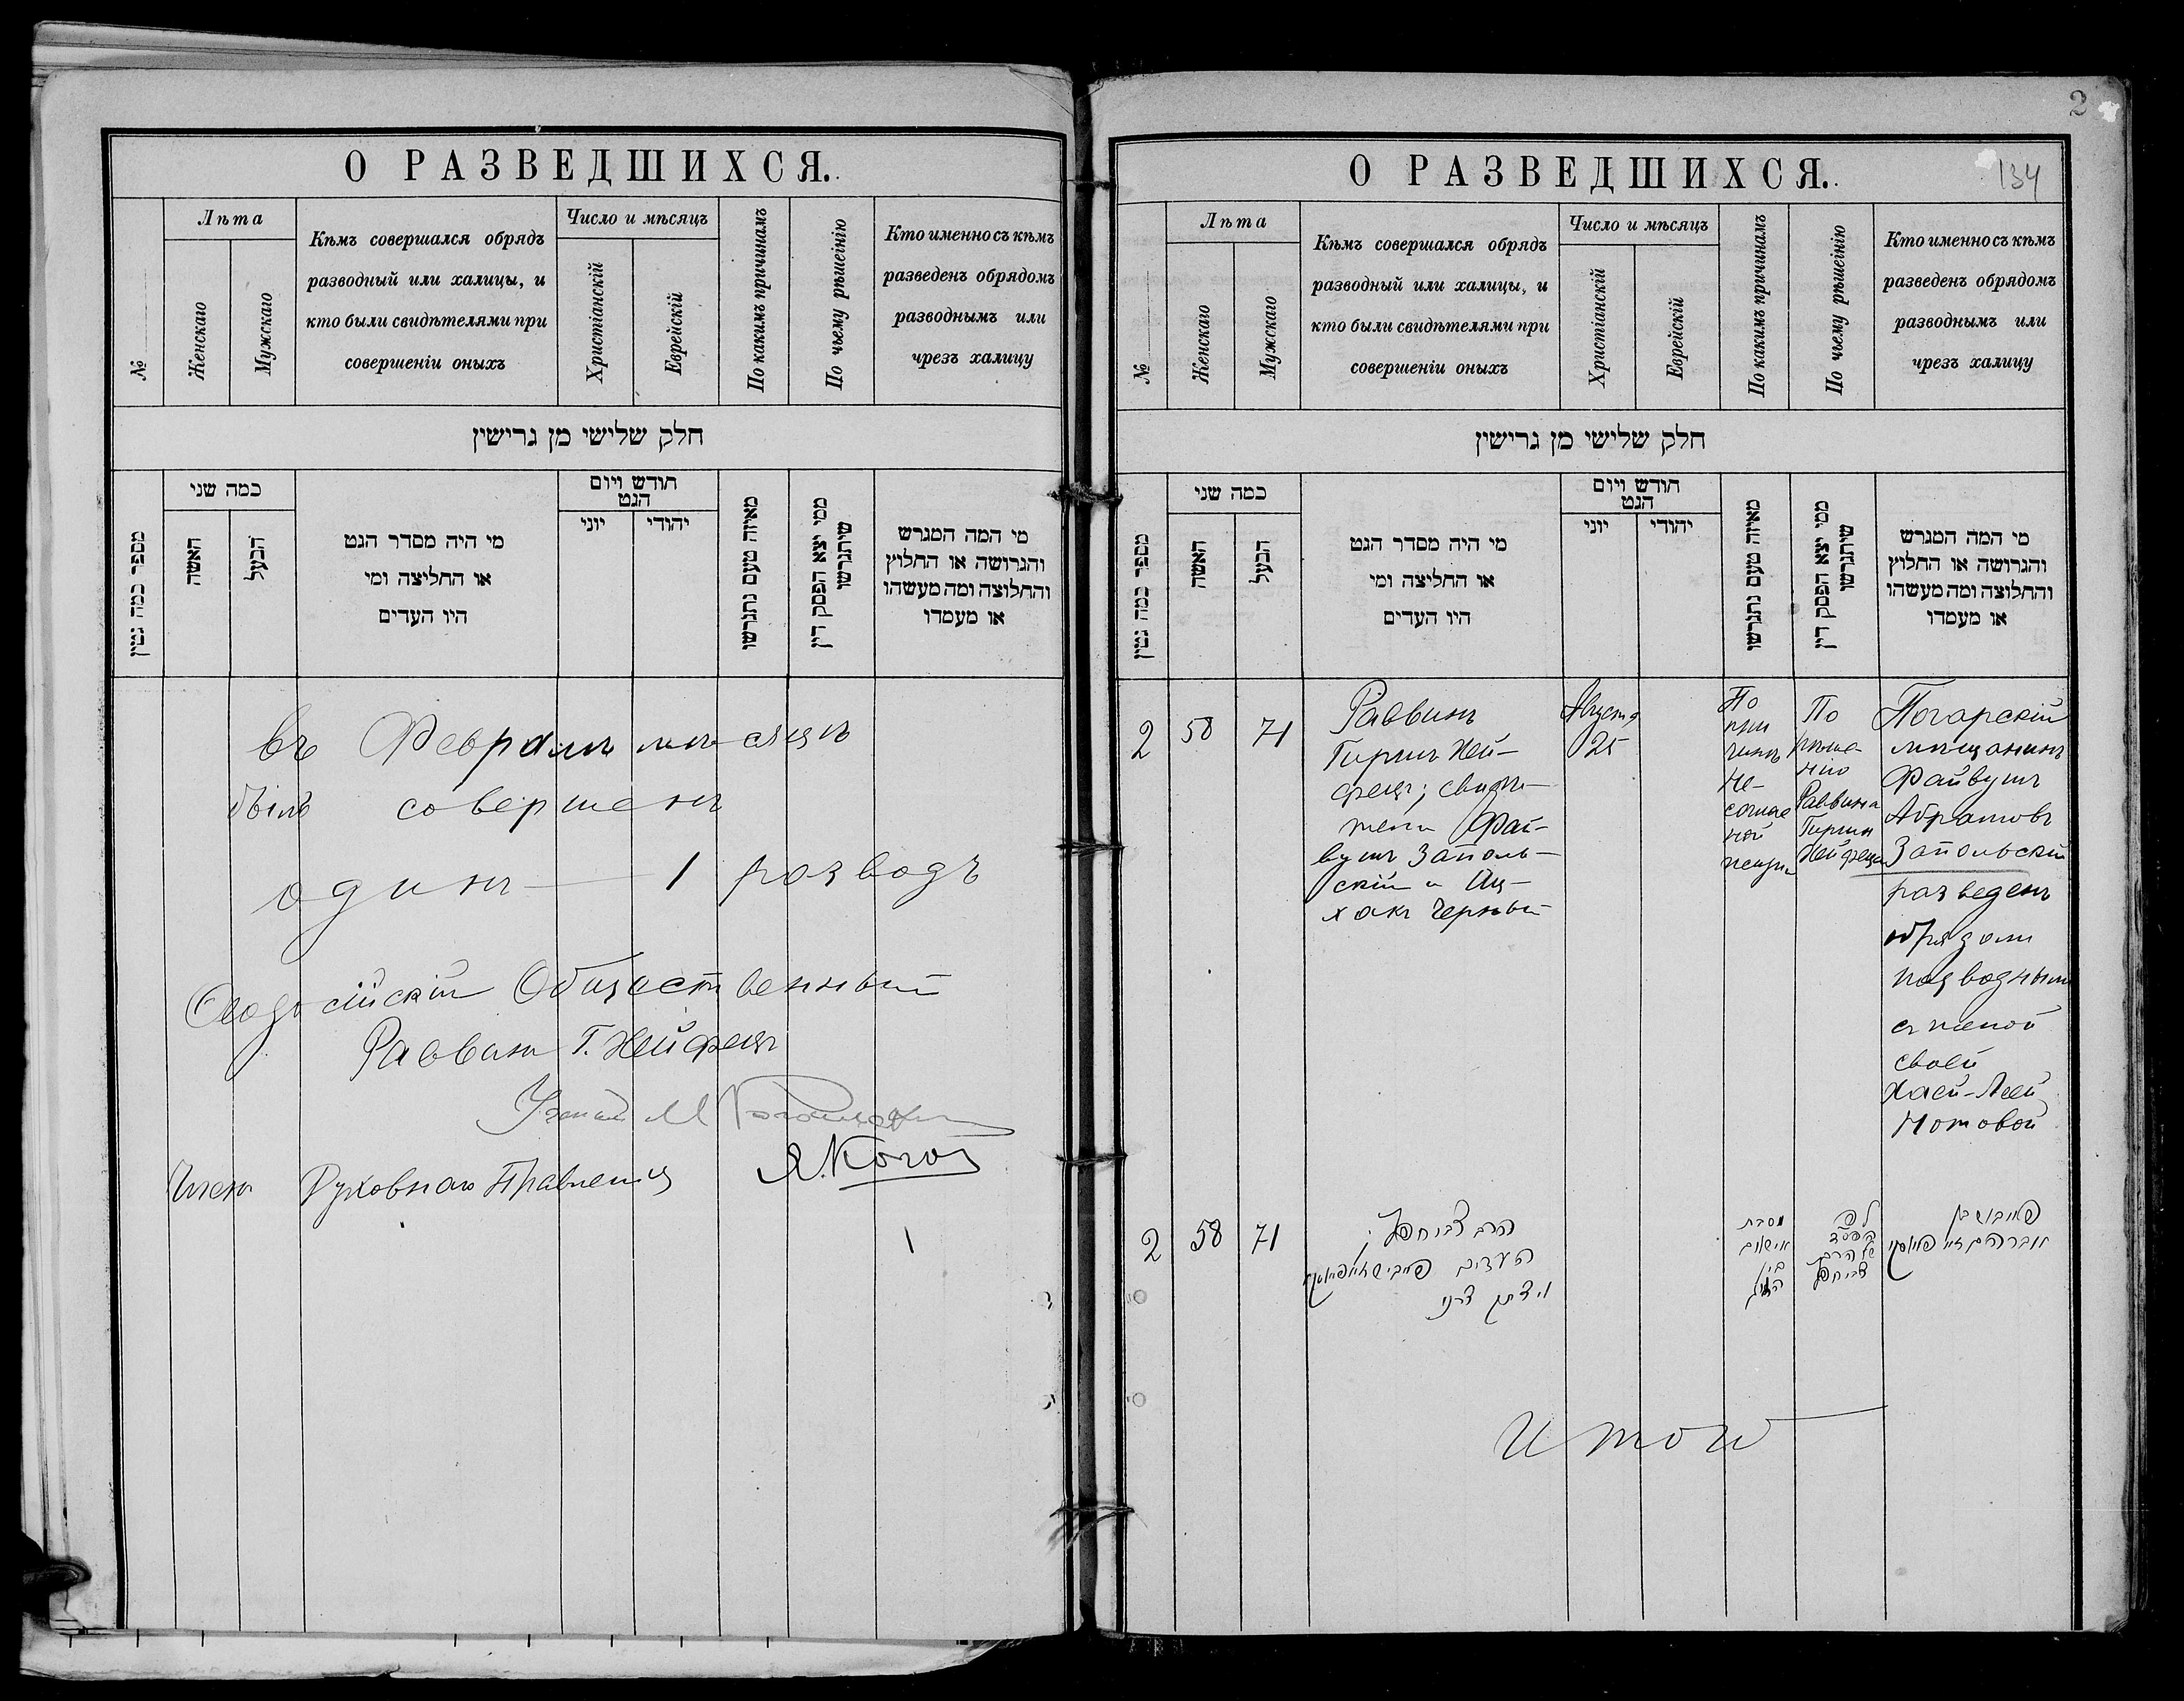 О РАЗВЕДШИХСЯ.
№
Лѣта
Женскаго
Мужскаго
Кѣмъ совершался обрядъ
разводный или халицы, и
кто были свидѣтелями при
совершеніи оныхъ
Число и мѣсяцъ
Христіанскій
Еврейскій
По какимъ причинамъ
По чьему рѣшеінію
Кто именно съ кѣмъ
разведенъ обрядомъ
разводнымъ или
чрезъ халицу
חלק שלישי מן גרישין
מספר כמה גטין
כמה שני
האשה
הבעל
מי היה מסדר הגט
או החליצה ומי
היו העדים
חודש ויום
הגט
יוני
יהודי
מאיזה טעם נתגרשו
ממי יצא הפסק דין
שיתגרשו
מי המה המגרש
והגרושה או החלוץ
והחלוצה ומה מעשהו
או מעמדו
въ Февралѣ мѣсяцѣ
былъ совершенъ
одинъ — 1 разводъ
Ѳеодосійскій Общественный
Раввинъ Г. Нейфецъ
Духовнаго Правленія
1
2
О РАЗВЕДШИХСЯ.
134
№
Лѣта
Женскаго
Мужскаго
Кѣмъ совершался обрядъ
разводный или халицы, и
кто были свидѣтелями при
совершеніи оныхъ
Число и мѣсяцъ
Христіанскій
Еврейскій
По какимъ причинамъ
По чьему рѣшеінію
Кто именно съ кѣмъ
разведенъ обрядомъ
разводнымъ или
чрезъ халицу
חלק שלישי מן גרישין
מספר כמה גטין
כמה שני
האשה
הבעל
מי היה מסדר הגט
או החליצה ומי
היו העדים
חודש ויום
הגט
יוני
יהודי
מאיזה טעם נתגרשו
ממי יצא הפסק דין
שיתגרשו
מי המה המגרש
והגרושה או החלוץ
והחלוצה ומה מעשהו
או מעמדו
2
58
71
Раввинъ
Гиршъ Ней-
фецъ; свидѣ-
тели Фай-
вушъ Заполь-
скій и Иц-
хакъ Черный
Августа
25
По
при
чинѣ
не-
соглас
ной
жизни
По
рѣше
нію
Раввина
Гирша
Нейфеца
Погарскій
мѣщанинъ
Файвушъ
Абрамовъ
Запольскій
разведенъ
обрядомъ
разводнымъ
съ женой
своей
Хаей-Леей
Нотовой
2
58
71
הרב צבי
העדים
מסבת
בין
לפי
של הרב
פייבוש בן
אברהם
Итого